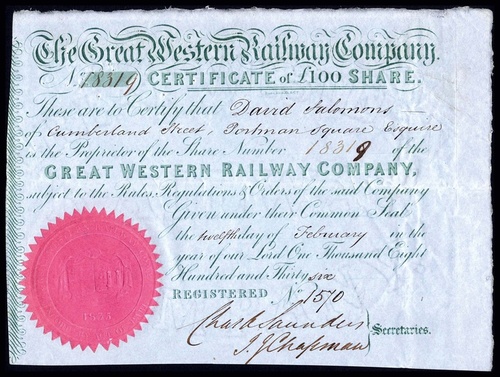 The Great Western Railway Company.
No. 18319 CERTIFICATE of £100 SHARE.
These are to Certify that David Salomons
of Cumberland Street, Portman Square Esquire
is the Proprietor of the Share Number 18319 of the
GREAT WESTERN RAILWAY COMPANY,
subject to the Rules, Regulations & Orders of the said Company
Given under their Common Seal
the twelfth day of February in the
year of our Lord One Thousand Eight
Hundred and Thirty six
REGISTERED No. 1570
Chas A Saunders
T. J. Chapman
Secretaries.
1835